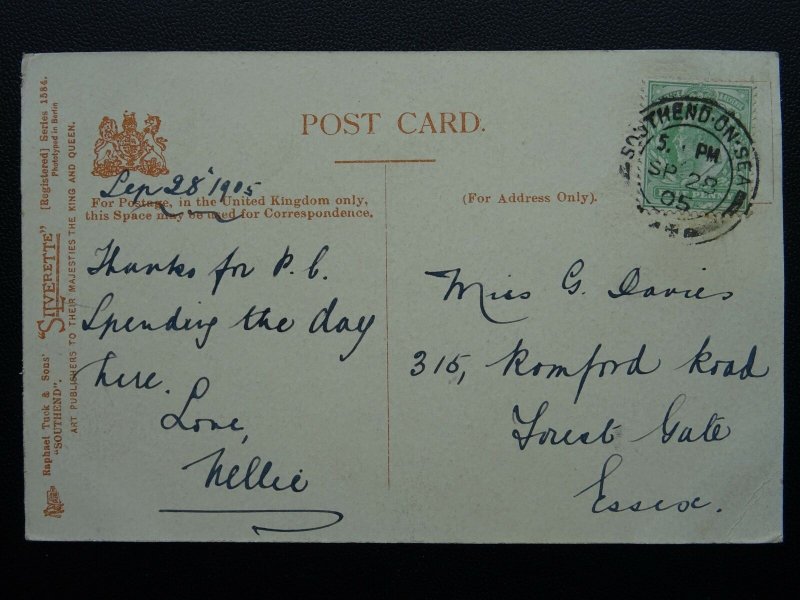 POST CARD.
Sep 28' 1905
For Postage, in the United Kingdom only,
this Space may be used for Correspondence.
(For Address Only).
Thanks for P.C.
Spending the day
here.
Love,
Nellie
Miss G. Davies
315, Romford Road
Forest Gate
Essex.
SOUTHEND-ON-SEA
5. PM
SP 28
05
Raphael Tuck & Sons' "SILVERETTE" [Registered] Series 1584.
"SOUTHEND".
Phototyped in Berlin
ART PUBLISHERS TO THEIR MAJESTIES THE KING AND QUEEN.